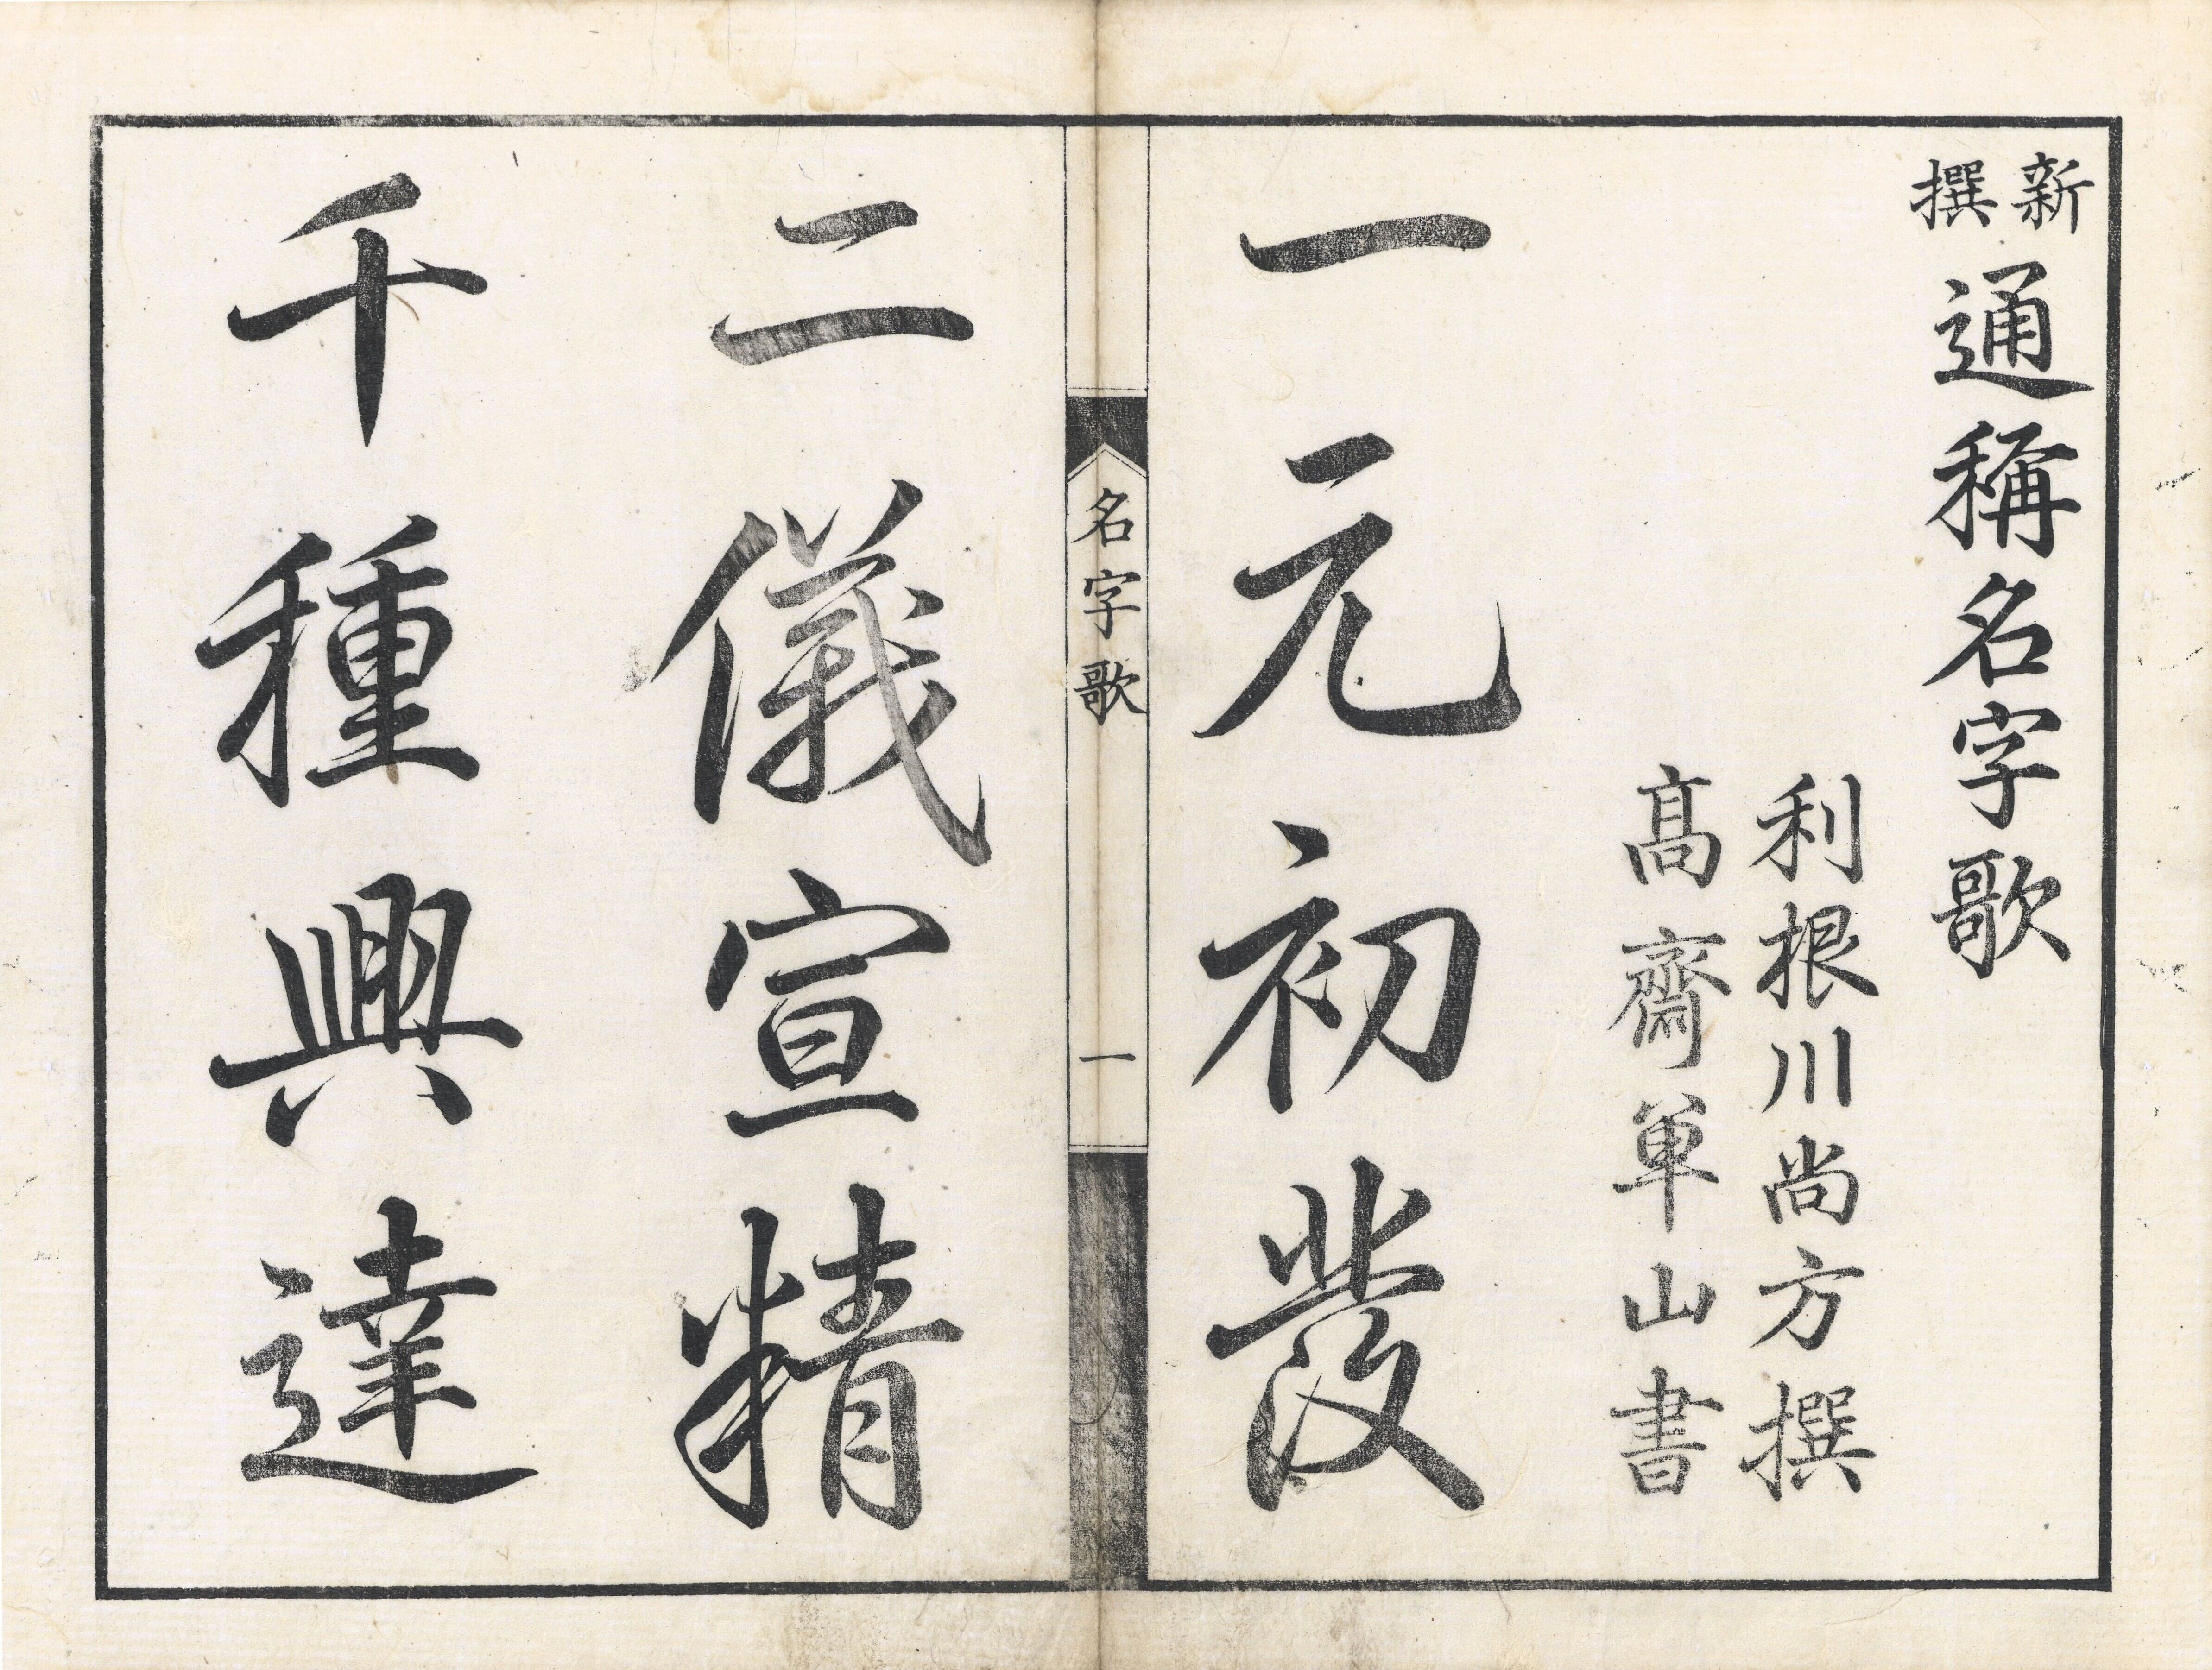 新撰通稱名字歌
利根川尚方撰
髙齋單山書
一元初發
名字歌 一
二儀宣精
千種興達